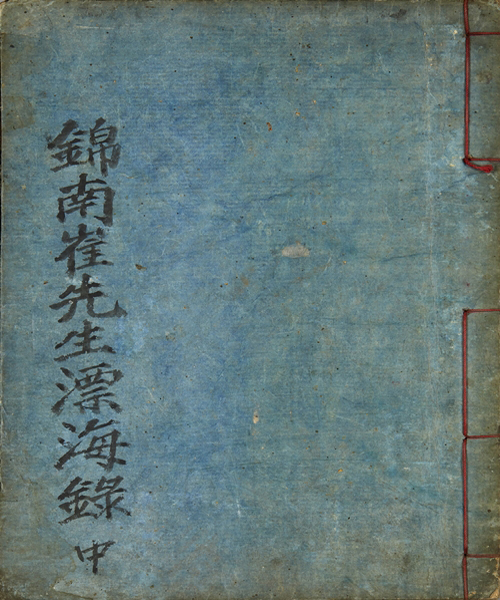 錦南崔先生漂海錄 中